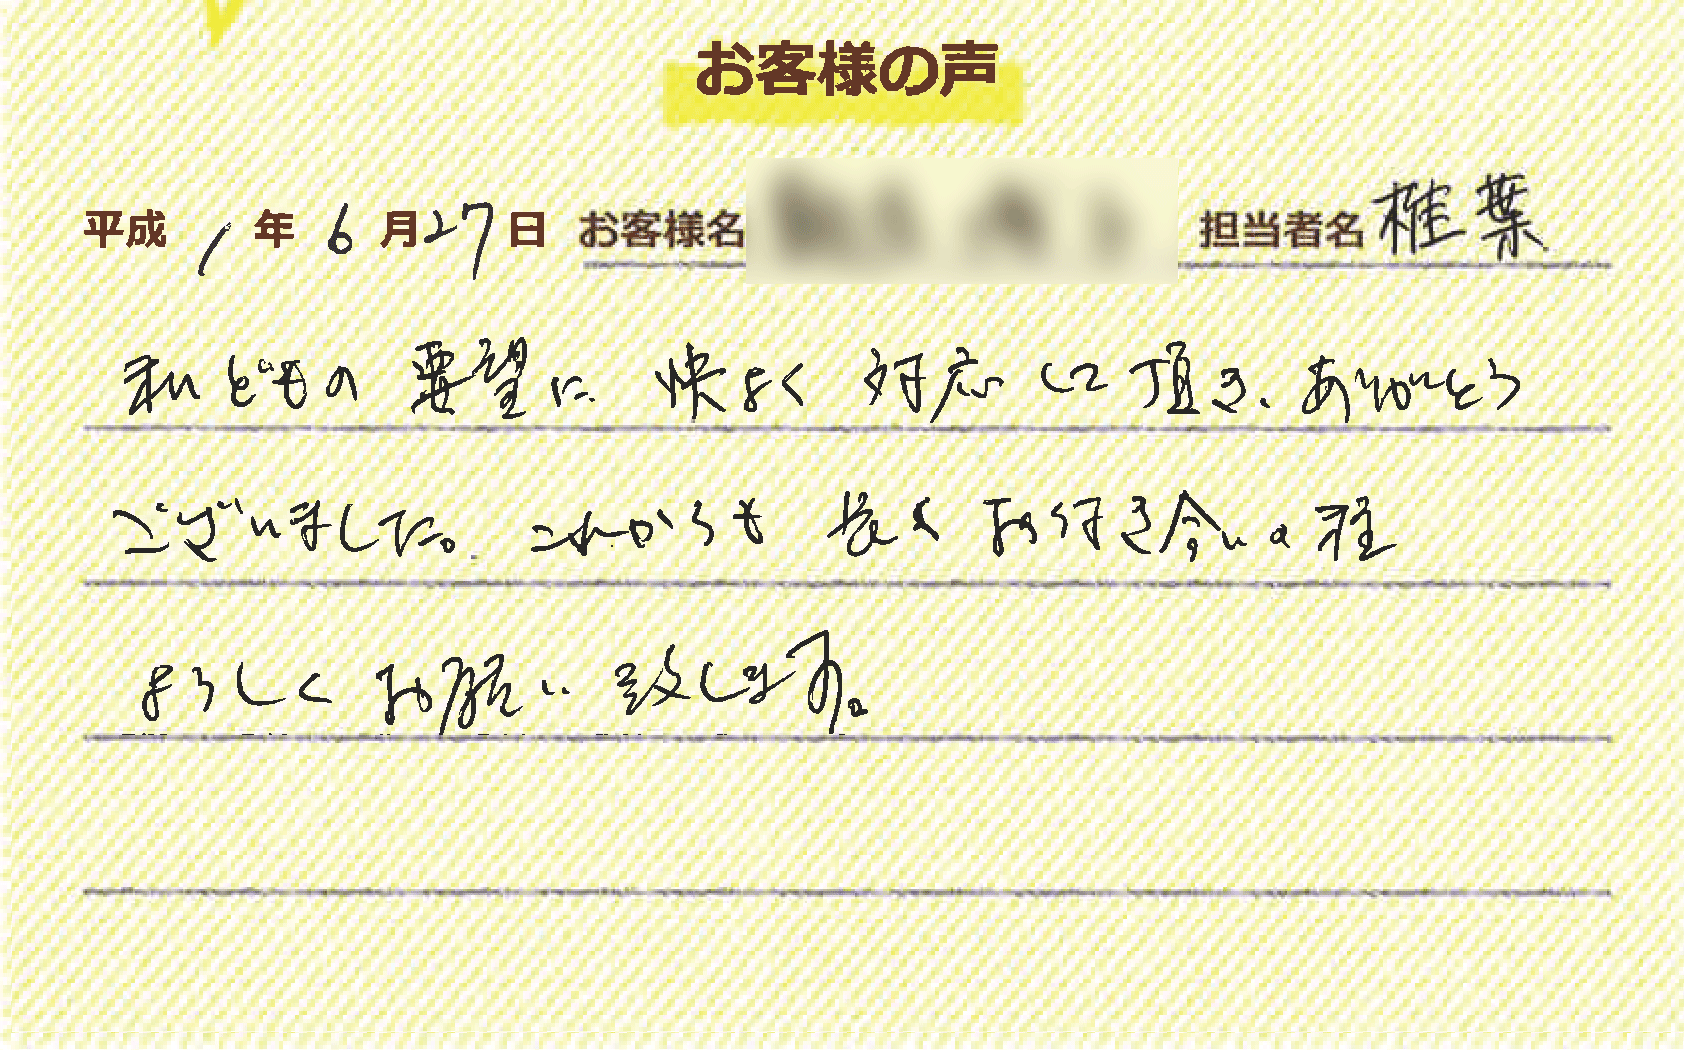 お客様の声
平成 1 年 6 月 27 日 お客様名 担当者名 椎葉
私どもの要望に 快よく 対応して頂き、ありがとう
ございました。これからも 長く お付き合いの程
よろしく お願い 致します。